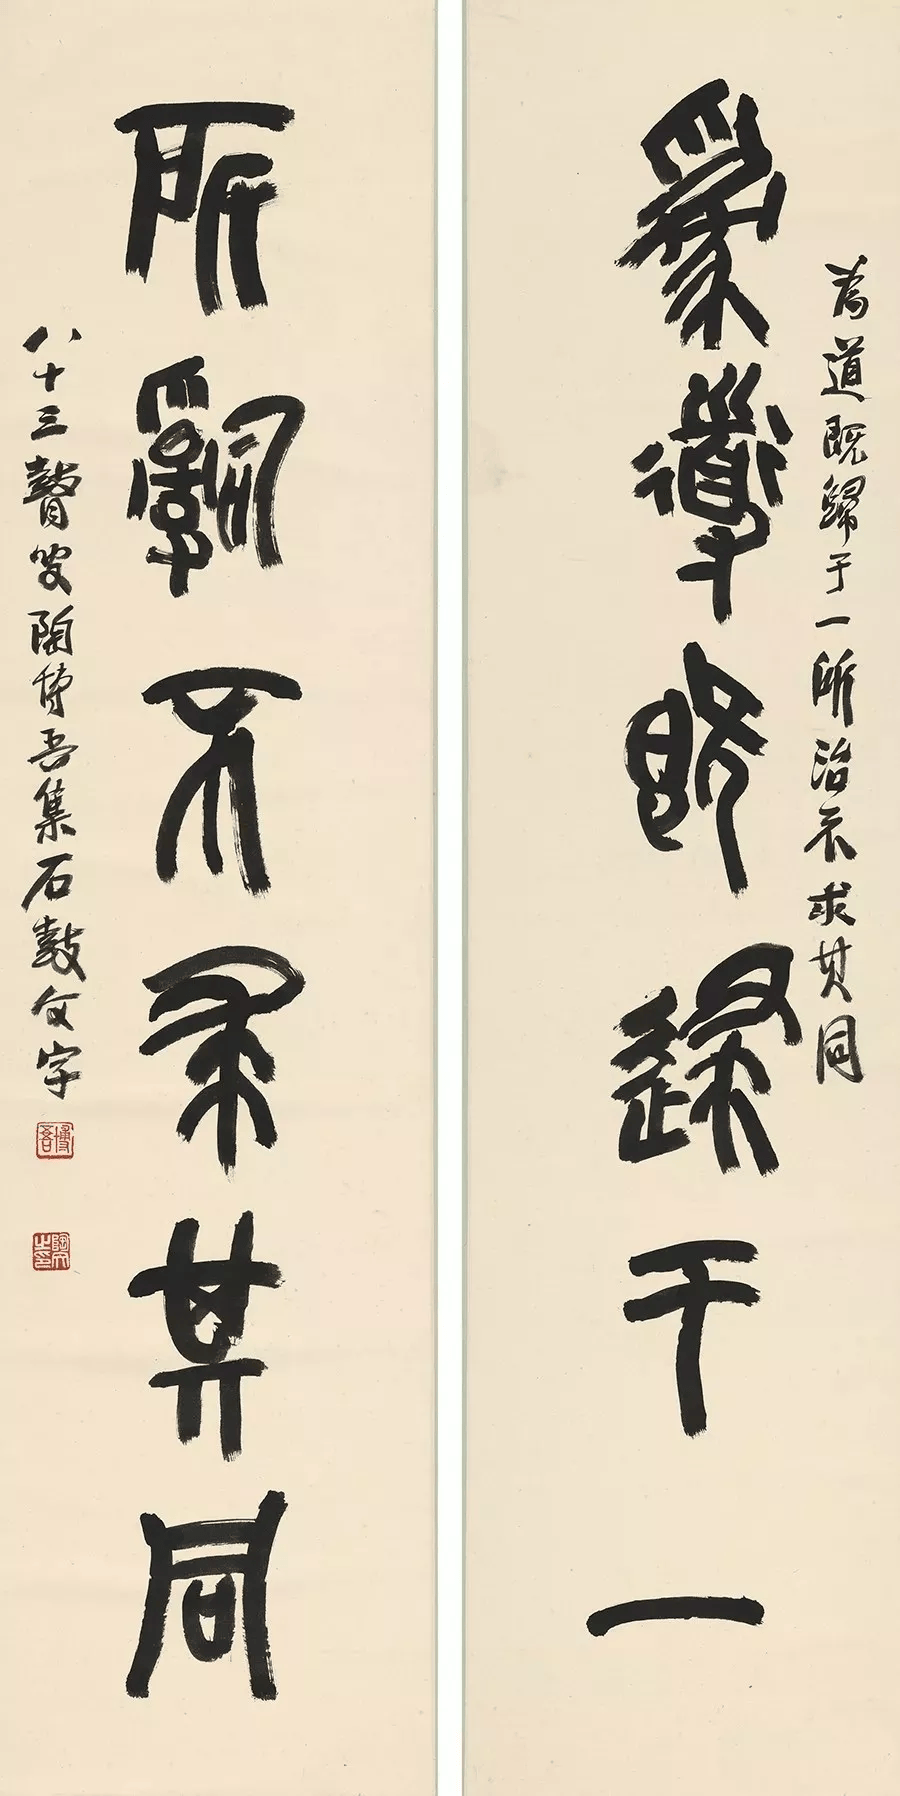 為道既歸于一
為道既歸于一所治不求其同
所治不求其同
八十三瞽叟陶博吾集石鼓文字
博吾
陶文之印